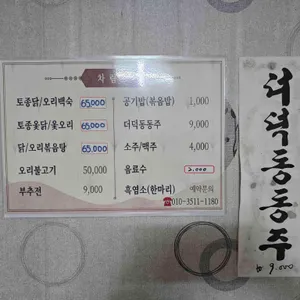 차림
토종닭/오리백숙 65,000
토종옻닭/옻오리 65,000
닭/오리볶음탕 65,000
오리불고기 50,000
부추전 9,000
공기밥(볶음밥) 1,000
더덕동동주 9,000
소주/맥주 4,000
음료수 2,000
흑염소(한마리) 예약문의
☎010-3511-1180
더덕동동주
₩ 9,000